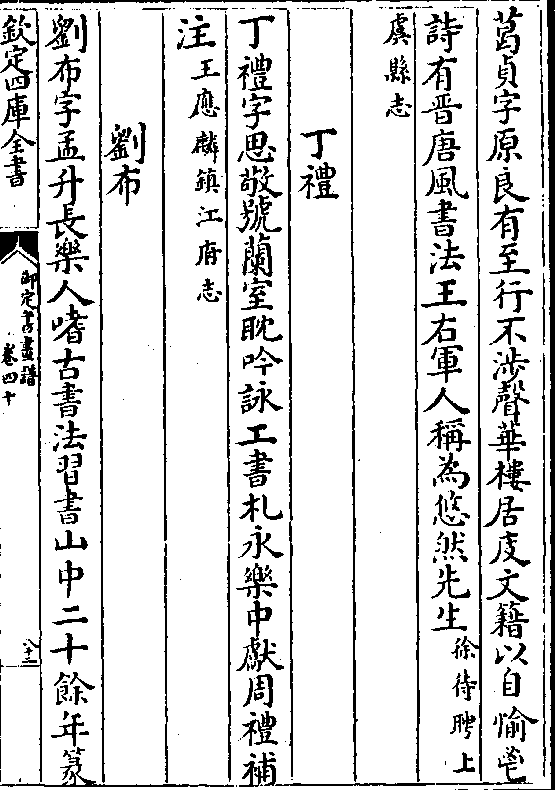 葛貞字原良有至行不涉聲華樓居庋文籍以自愉邑
詩有晋唐風書法王右軍人稱為悠然先生徐待聘上
虞縣志
丁禮
丁禮字思敬號蘭室眈吟詠工書札永樂中獻周禮補
注王應麟鎮江府志
劉布
劉布字孟升長樂人嗜古書法習書山中二十餘年篆
欽定四庫全書
御定書畫譜
卷四十